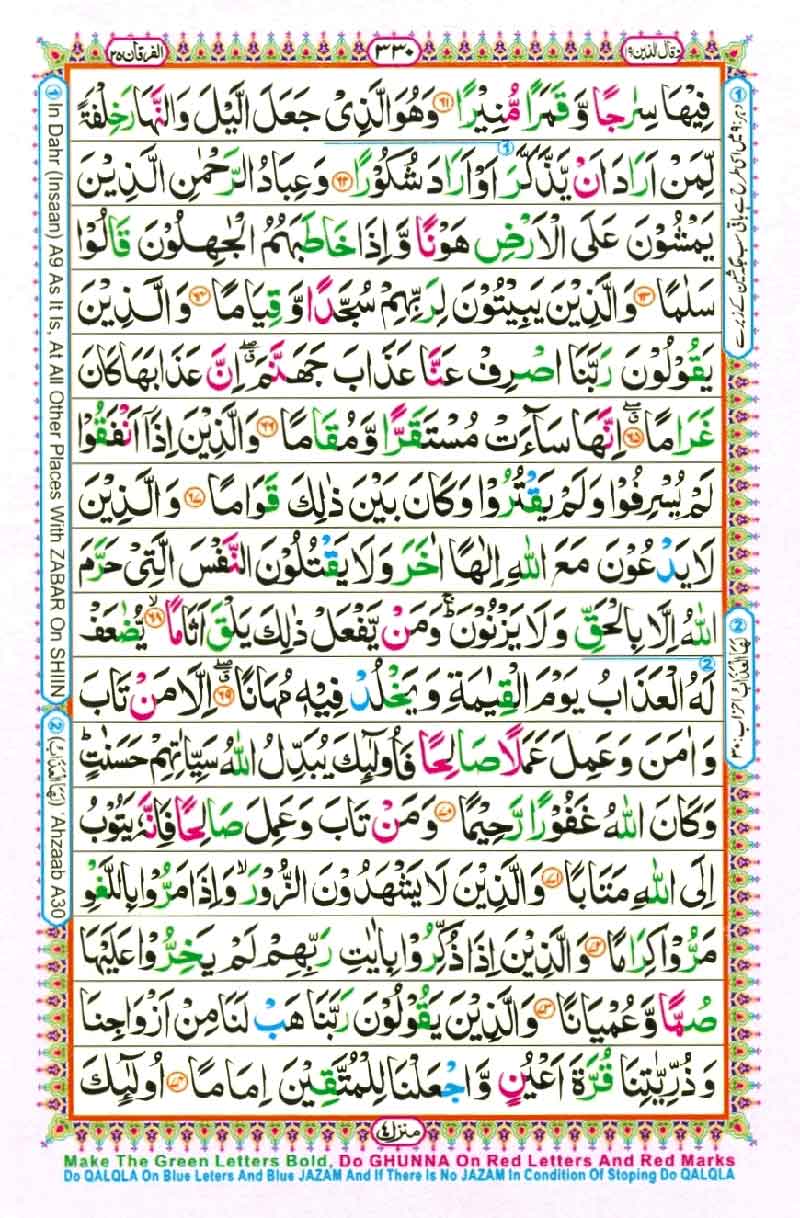 وقال الذین ۱۹
۳۳۰
الفرقان ۲۵
فِيْهَا سِرٰجًا وَّقَمَرًا مُّنِيْرًا ۶۱ وَهُوَ الَّذِيْ جَعَلَ الَّيْلَ وَالنَّهَارَ خِلْفَةً
لِّمَنْ اَرَادَ اَنْ يَّذَّكَّرَ اَوْ اَرَادَ شُكُوْرًا ۶۲ وَعِبَادُ الرَّحْمٰنِ الَّذِيْنَ
يَمْشُوْنَ عَلَى الْاَرْضِ هَوْنًا وَّاِذَا خَاطَبَهُمُ الْجٰهِلُوْنَ قَالُوْا
سَلٰمًا ۶۳ وَالَّذِيْنَ يَبِيْتُوْنَ لِرَبِّهِمْ سُجَّدًا وَّقِيَامًا ۶۴ وَالَّذِيْنَ
يَقُوْلُوْنَ رَبَّنَا اصْرِفْ عَنَّا عَذَابَ جَهَنَّمَ ۖ اِنَّ عَذَابَهَا كَانَ
غَرَامًا ۶۵ اِنَّهَا سَآءَتْ مُسْتَقَرًّا وَّمُقَامًا ۶۶ وَالَّذِيْنَ اِذَآ اَنْفَقُوْا
لَمْ يُسْرِفُوْا وَلَمْ يَقْتُرُوْا وَكَانَ بَيْنَ ذٰلِكَ قَوَامًا ۶۷ وَالَّذِيْنَ
لَا يَدْعُوْنَ مَعَ اللّٰهِ اِلٰهًا اٰخَرَ وَلَا يَقْتُلُوْنَ النَّفْسَ الَّتِيْ حَرَّمَ
اللّٰهُ اِلَّا بِالْحَقِّ وَلَا يَزْنُوْنَ ۚ وَمَنْ يَّفْعَلْ ذٰلِكَ يَلْقَ اَثَامًا ۶۸ يُّضٰعَفْ
لَهُ الْعَذَابُ يَوْمَ الْقِيٰمَةِ وَيَخْلُدْ فِيْهٖ مُهَانًا ۶۹ اِلَّا مَنْ تَابَ
وَاٰمَنَ وَعَمِلَ عَمَلًا صَالِحًا فَاُولٰٓئِكَ يُبَدِّلُ اللّٰهُ سَيِّاٰتِهِمْ حَسَنٰتٍ ؕ
وَكَانَ اللّٰهُ غَفُوْرًا رَّحِيْمًا ۷۰ وَمَنْ تَابَ وَعَمِلَ صَالِحًا فَاِنَّهٗ يَتُوْبُ
اِلَى اللّٰهِ مَتَابًا ۷۱ وَالَّذِيْنَ لَا يَشْهَدُوْنَ الزُّوْرَ ۙ وَاِذَا مَرُّوْا بِاللَّغْوِ
مَرُّوْا كِرَامًا ۷۲ وَالَّذِيْنَ اِذَا ذُكِّرُوْا بِاٰيٰتِ رَبِّهِمْ لَمْ يَخِرُّوْا عَلَيْهَا
صُمًّا وَّعُمْيَانًا ۷۳ وَالَّذِيْنَ يَقُوْلُوْنَ رَبَّنَا هَبْ لَنَا مِنْ اَزْوَاجِنَا
وَذُرِّيّٰتِنَا قُرَّةَ اَعْيُنٍ وَّاجْعَلْنَا لِلْمُتَّقِيْنَ اِمَامًا ۷۴ اُولٰٓئِكَ
منزل ۴
① In Dahr (Insaan) A9 As It Is, At All Other Places With ZABAR On SHIIN ② (لَهَا الْعَذَابُ) 'Ahzaab A30
② لَهَا الْعَذَابُ احزاب: ۳۰
Make The Green Letters Bold, Do GHUNNA On Red Letters And Red Marks
Do QALQLA On Blue Leters And Blue JAZAM And If There Is No JAZAM In Condition Of Stoping Do QALQLA